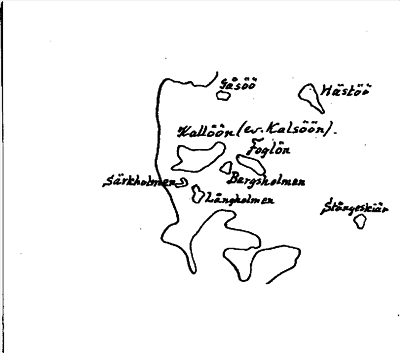 Gåsöö
Hästöö
Kallöön (ev. Kalsöön).
Foglön
Bergsholmen
Särkholmen
Långholmen
Stångeskiär